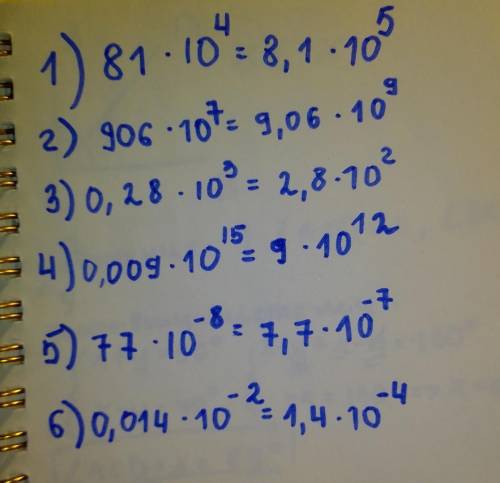 1) 81 · 10⁴ = 8,1 · 10⁵
2) 906 · 10⁷ = 9,06 · 10⁹
3) 0,28 · 10³ = 2,8 · 10²
4) 0,009 · 10¹⁵ = 9 · 10¹²
5) 77 · 10⁻⁸ = 7,7 · 10⁻⁷
6) 0,014 · 10⁻² = 1,4 · 10⁻⁴